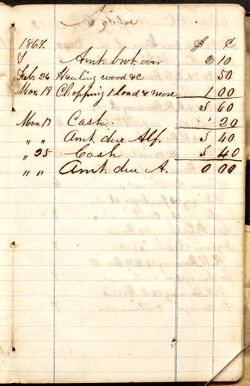 1867. $ ¢
Amt. brot over 2 10
Feb. 26 Hauling wood &c 50
Mar. 19 Chopping 1 load & more 1 00
3 60
Mar. 19 Cash 20
" " Amt. due Alf. 3 40
" 25 Cash 3 40
" " Amt. due A. 0 00